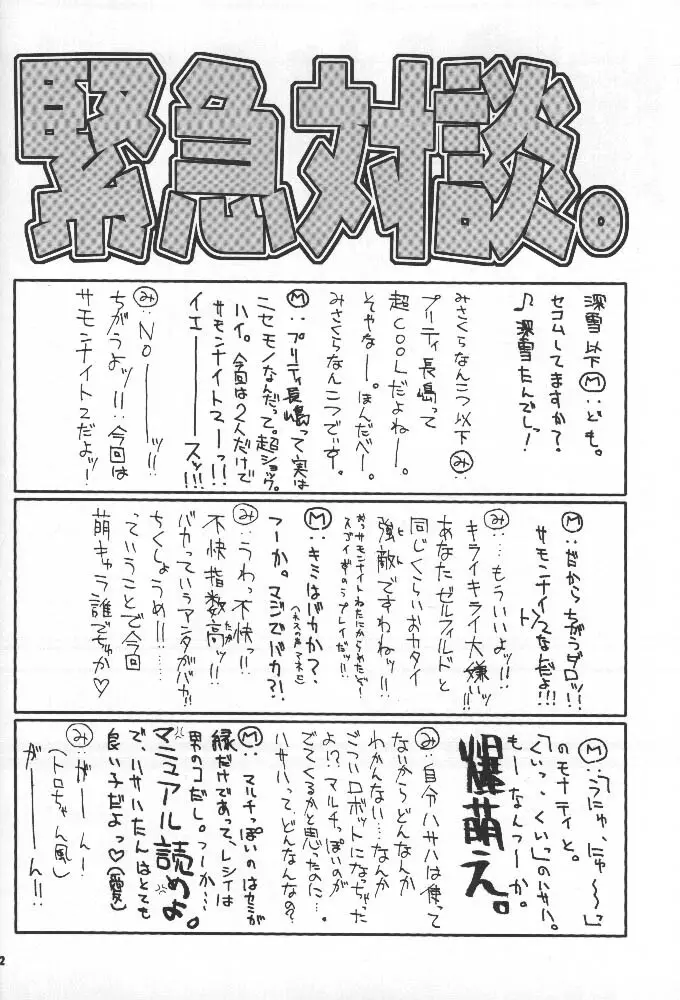 緊急対談。
深雪以下Ⓜ:ども。
セコムしてますか?
♪深雪たんでしっ!
みさくらなんこつ以下み:
プリティ長嶋って
超COOLだよねー。
そやなー。ほんだべー。
みさくらなんこつでぃす。
Ⓜ:プリティ長嶋って実は
ニセモノなんだって。超ショック。
ハイ。今回は2人だけで
サモンナイトマーっ!!
イエーーースッ!!!
み:NOーーーッ!!
ちがうよッ!!:今回は
サモンナイト2だよッ!
Ⓜ:だからちがうダロッ!!
サモンナイトンスなんだよ!!!
み:…もういいよッ!!
キライキライ大嫌いッ!!
あなたゼルフィルドと
同じくらいおカタイ
強敵ですわねッ!!
Ⓜ:キミはバカか?
つーか。マジでバカ?!
み:うわっ不快っ!!
不快指数高ッ!!
バカっていうアンタがバカ!!
ちくしょうめ!!……
っていうことで今回
萌キャラ誰でぢか♡
Ⓜ:「うにゅ、にゅ〜〜」
のモナティと。
「くいっ、くいっ」のハサハ。
もーなんつーか。
爆萌え。
み:自分ハサハは使って
ないからどんなんか
わかんない…なんか
ごついロボットになっちゃった
よ!?マルチっぽいのが
でてくるかと思ったのに…。
ハサハってどんなんなの?
Ⓜ:マルチっぽいのはセミが
縁だけであって、レシィは
男のコだし。つーか…
マニュアル読めよ。
で、ハサハたんはとても
良い子だよっ♡(愛)
み:がーん!
(トロちゃん風)
がーーーん!!
2